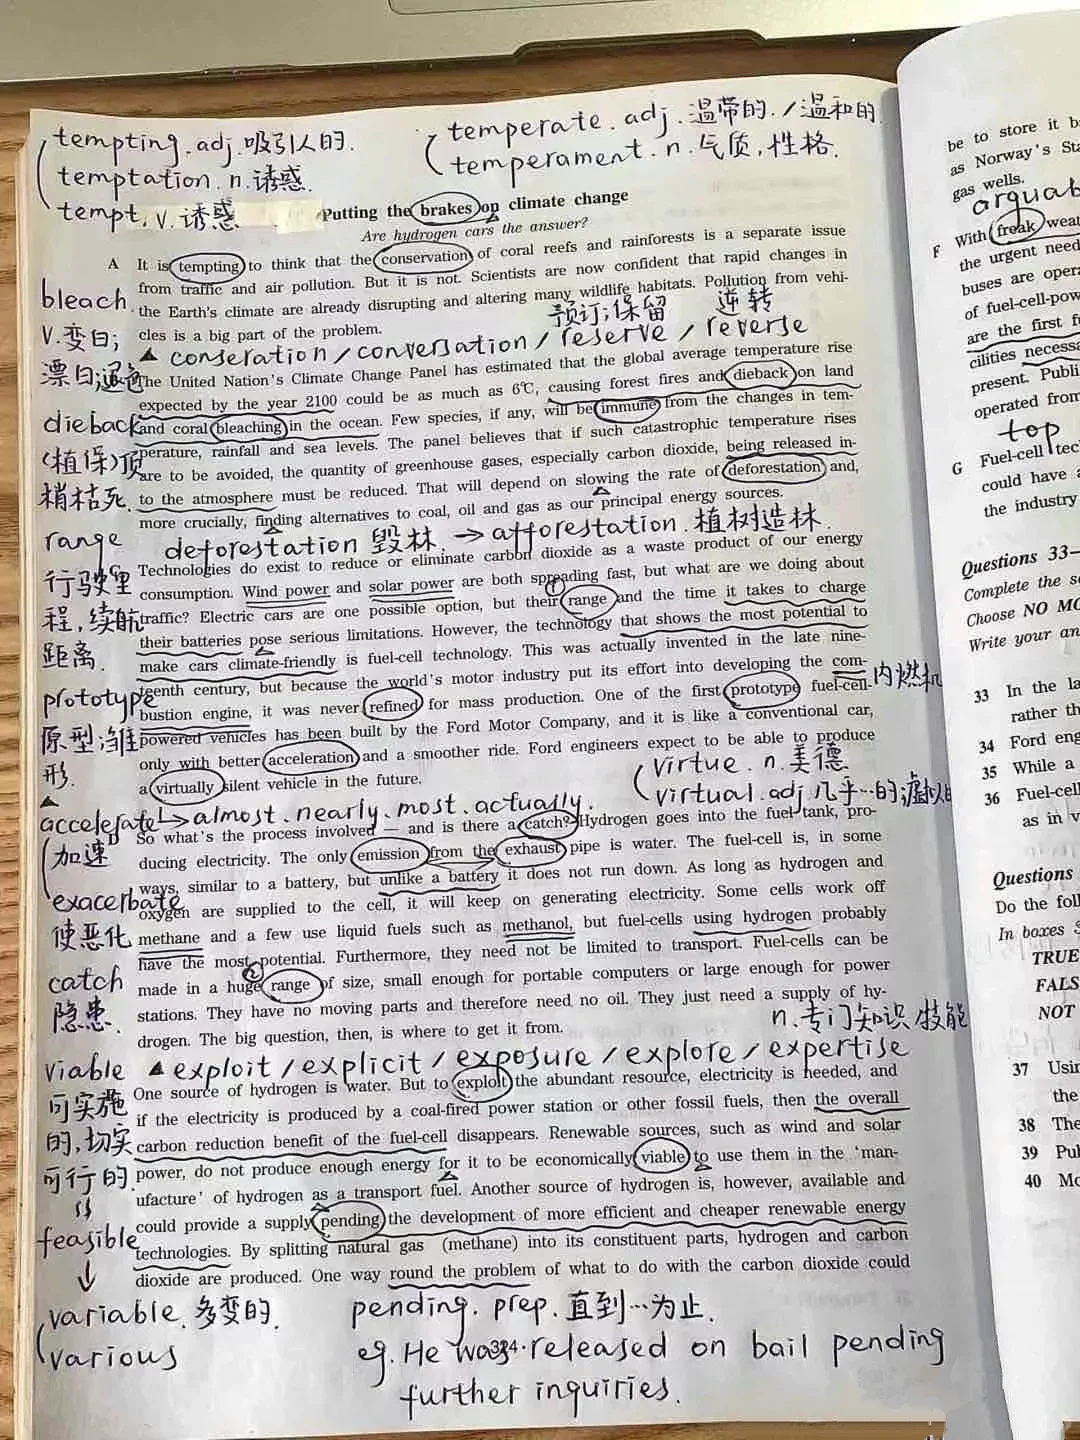 tempting. adj. 吸引人的.
temptation. n. 诱惑.
tempt. v. 诱惑
temperate. adj. 温带的. / 温和的.
temperament. n. 气质, 性格.
Putting the brakes on climate change
Are hydrogen cars the answer?
A It is tempting to think that the conservation of coral reefs and rainforests is a separate issue
from traffic and air pollution. But it is not. Scientists are now confident that rapid changes in
the Earth's climate are already disrupting and altering many wildlife habitats. Pollution from vehi-
cles is a big part of the problem.
预订; 保留 逆转
▲ conseration / conversation / reserve / reverse
The United Nation's Climate Change Panel has estimated that the global average temperature rise
expected by the year 2100 could be as much as 6℃, causing forest fires and dieback on land
and coral bleaching in the ocean. Few species, if any, will be immune from the changes in tem-
perature, rainfall and sea levels. The panel believes that if such catastrophic temperature rises
are to be avoided, the quantity of greenhouse gases, especially carbon dioxide, being released in-
to the atmosphere must be reduced. That will depend on slowing the rate of deforestation and,
more crucially, finding alternatives to coal, oil and gas as our principal energy sources.
deforestation 毁林. → afforestation. 植树造林.
C Technologies do exist to reduce or eliminate carbon dioxide as a waste product of our energy
consumption. Wind power and solar power are both spreading fast, but what are we doing about
traffic? Electric cars are one possible option, but their range and the time it takes to charge
their batteries pose serious limitations. However, the technology that shows the most potential to
make cars climate-friendly is fuel-cell technology. This was actually invented in the late nine-
teenth century, but because the world's motor industry put its effort into developing the com-
bustion engine, it was never refined for mass production. One of the first prototype fuel-cell-
powered vehicles has been built by the Ford Motor Company, and it is like a conventional car,
only with better acceleration and a smoother ride. Ford engineers expect to be able to produce
a virtually silent vehicle in the future.
内燃机
virtue. n. 美德
virtual. adj. 几乎…的; 虚拟的
↳ almost. nearly. most. actually.
D So what's the process involved — and is there a catch? Hydrogen goes into the fuel tank, pro-
ducing electricity. The only emission from the exhaust pipe is water. The fuel-cell is, in some
ways, similar to a battery, but unlike a battery it does not run down. As long as hydrogen and
oxygen are supplied to the cell, it will keep on generating electricity. Some cells work off
methane and a few use liquid fuels such as methanol, but fuel-cells using hydrogen probably
have the most potential. Furthermore, they need not be limited to transport. Fuel-cells can be
made in a huge range of size, small enough for portable computers or large enough for power
stations. They have no moving parts and therefore need no oil. They just need a supply of hy-
drogen. The big question, then, is where to get it from.
n. 专门知识/技能
▲ exploit / explicit / exposure / explore / expertise
One source of hydrogen is water. But to exploit the abundant resource, electricity is needed, and
if the electricity is produced by a coal-fired power station or other fossil fuels, then the overall
carbon reduction benefit of the fuel-cell disappears. Renewable sources, such as wind and solar
power, do not produce enough energy for it to be economically viable to use them in the 'man-
ufacture' of hydrogen as a transport fuel. Another source of hydrogen is, however, available and
could provide a supply pending the development of more efficient and cheaper renewable energy
technologies. By splitting natural gas (methane) into its constituent parts, hydrogen and carbon
dioxide are produced. One way round the problem of what to do with the carbon dioxide could
bleach
v. 变白;
漂白; 退色
dieback
(植保)顶
梢枯死.
range
行驶里
程, 续航
距离.
prototype
原型; 雏
形.
▲
accelerate
加速
exacerbate
使恶化
catch
隐患.
viable
可实施
的, 切实
可行的.
feasible
↓
variable. 多变的.
various
pending. prep. 直到…为止.
· 324 ·
eg. He was released on bail pending
further inquiries.
be to store it
as Norway's
gas wells.
F With freak
the urgent need
buses are
of fuel-cell-
are the first
cilities
present.
operated from
top
G Fuel-cell
could have
the industry
Questions 33
Complete the
Choose NO
Write your
33 In the
rather
34 Ford
35 While a
36 Fuel-cell
as in
Questions
Do the
In boxes
TRUE
NOT
37
the
38 The
39
40